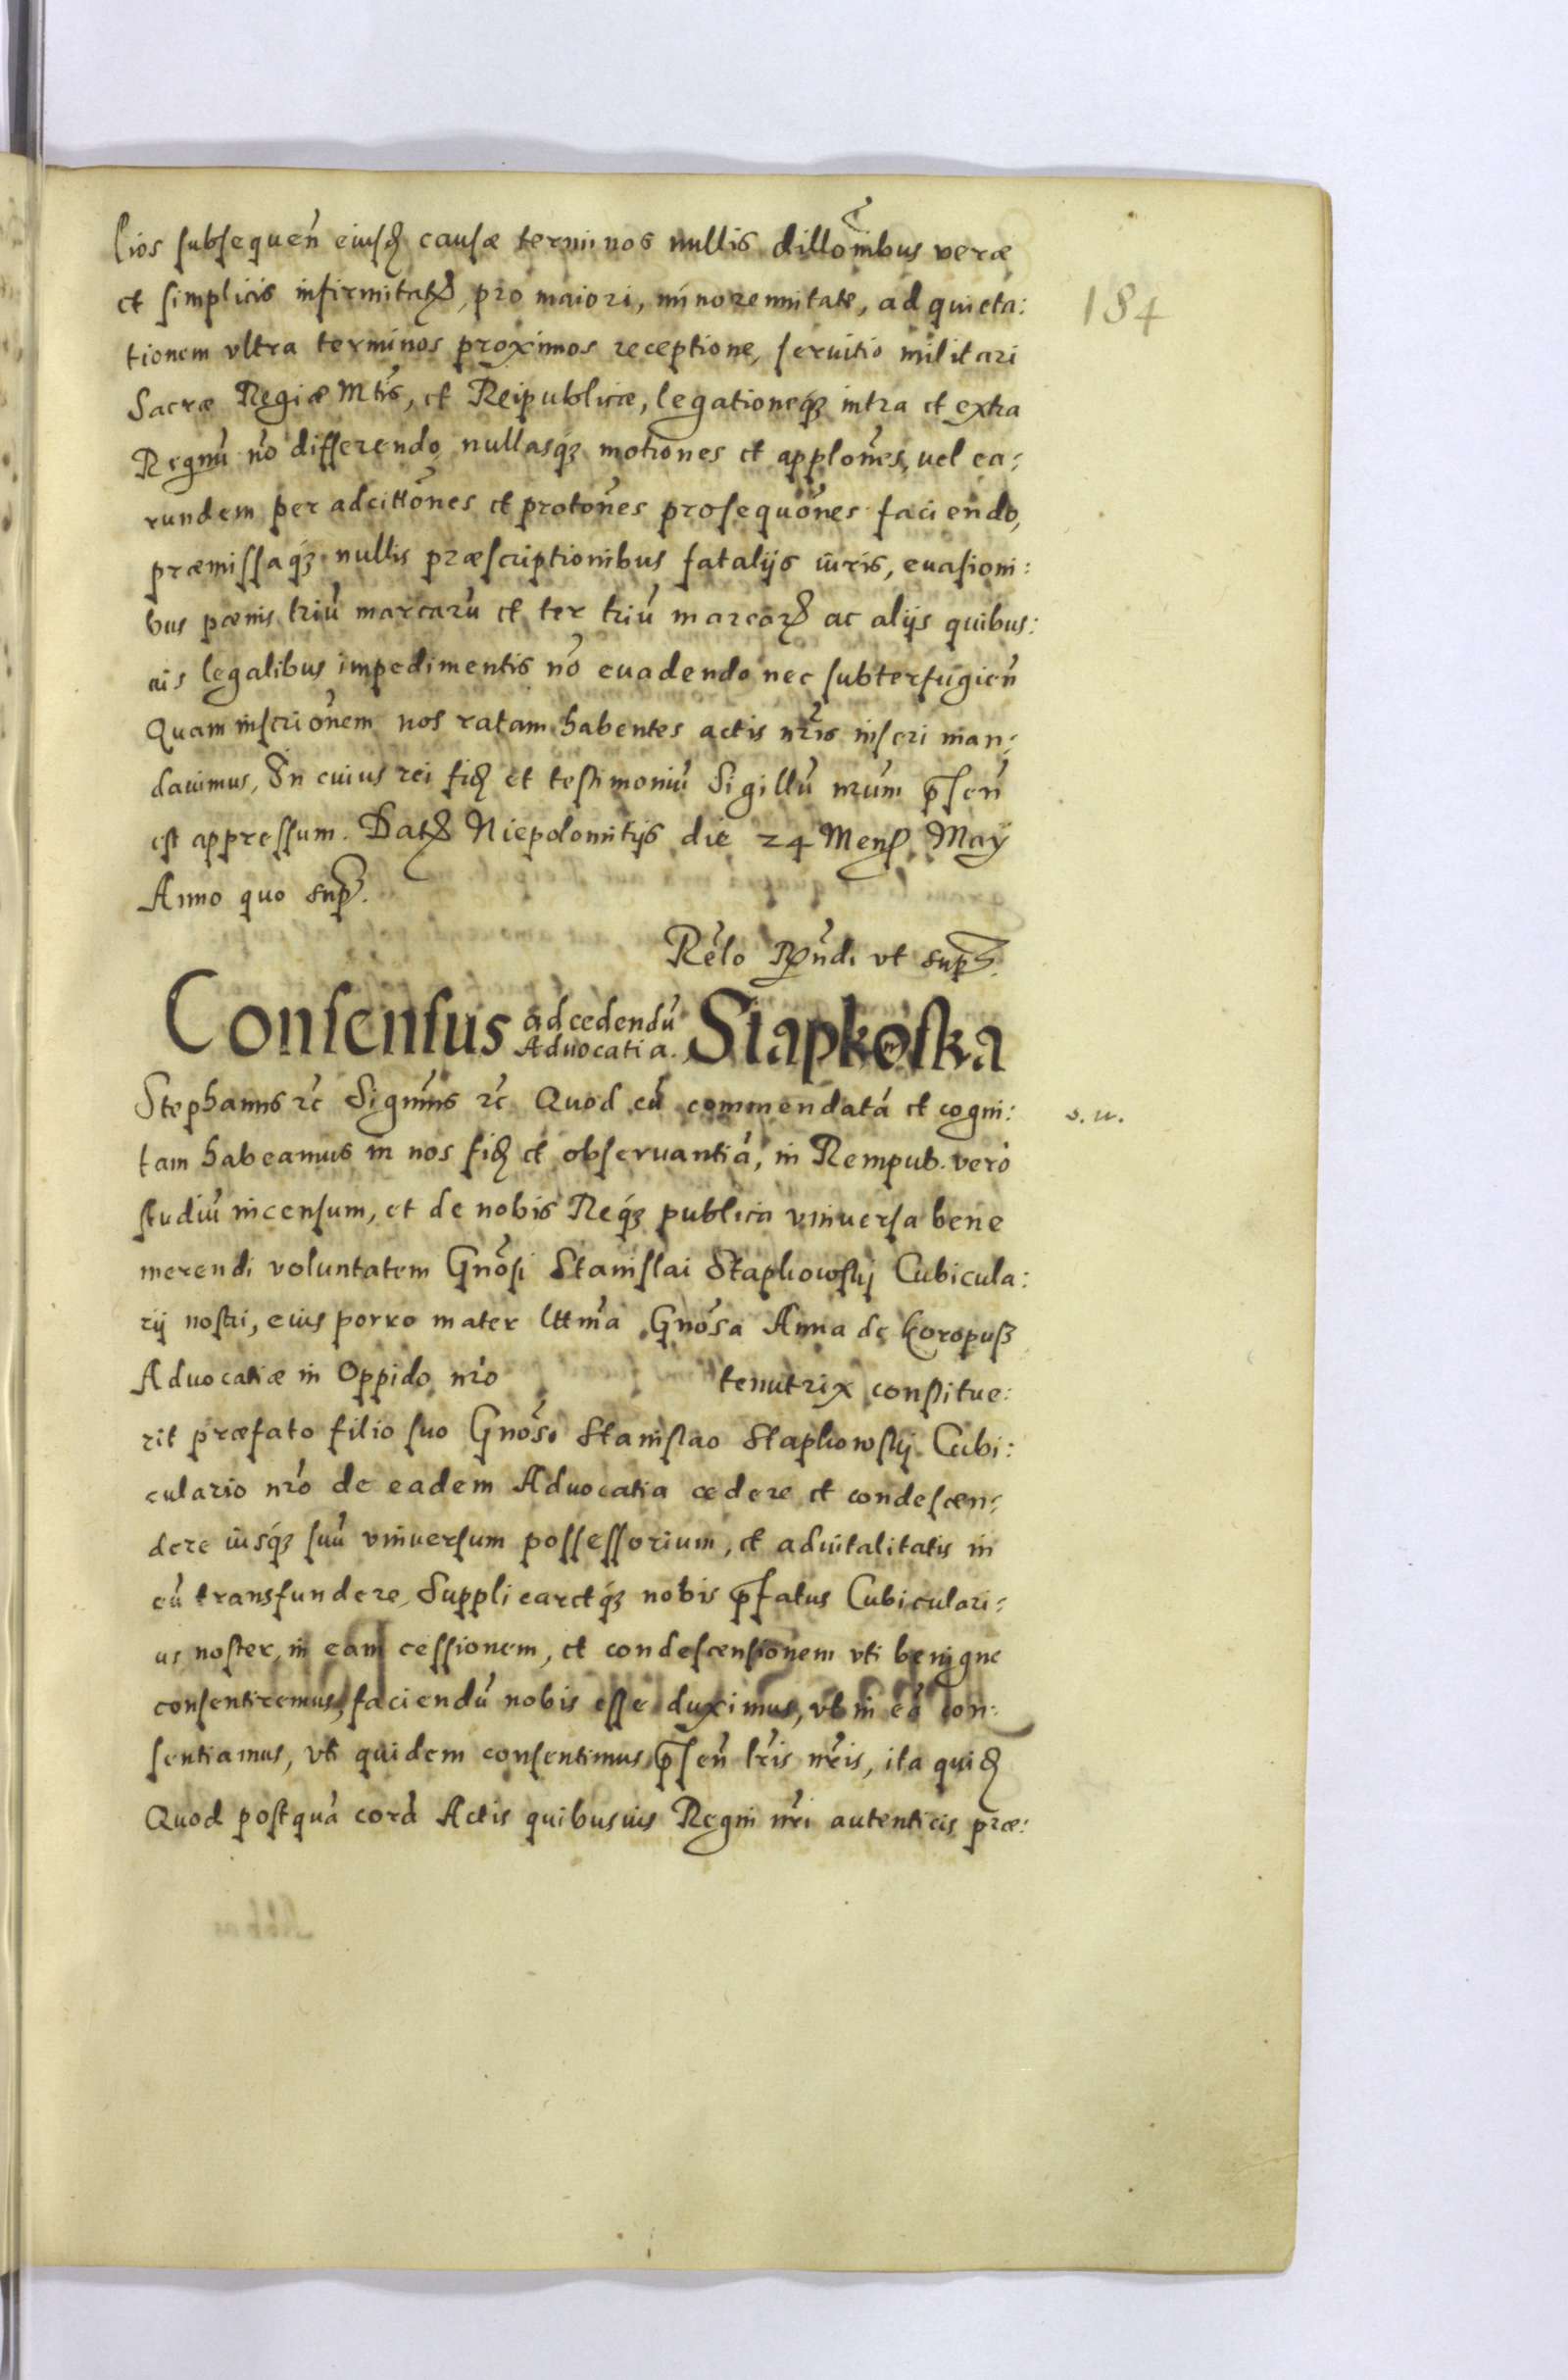 lios subsequeñ eiusdꝫ causæ terminos nullis dillõnibus veræ
et simplicis infirmitatꝫ, pro maiori, minorennitate, ad quieta:
184
tionem vltra terminos proximos receptione, seruitio militari
Sacræ Regiæ Mtis, et Reipublicæ, legationeqꝫ intra et extra
Regnũ nõ differendo nullasqꝫ motiones et applõnes, vel ea:
rundem per adcittõnes et protõnes prosequõnes faciendo,
præmissaqꝫ nullis præscriptionibus fatalijs iuris, euasioni:
bus pœnis triũ marcarũ et ter triũ marcarꝫ ac alijs quibus:
uis legalibus impedimentis nõ euadendo nec subterfugieñ
Quam inscriõnem nos ratam habentes actis nr̃is inseri man:
dauimus, In cuius rei fidꝫ et testimoniũ Sigillũ nr̃um p̃señ
est appressum. Datꝫ Niepolomitijs die 24 Mensꝫ May
Anno quo supꝫ.
Rẽlo Rꝫñdi vt supꝫ.
Consensus ad cedendũ Advocatia. Stapkoska
Stephanus ꝛc̃ Signũs ꝛc̃ Quod cũ commendatã et cogni:
s. w.
tam habeamus in nos fidꝫ et obseruantiã, in Rempub. verò
studiũ incensum, et de nobis Reqꝫ publica vniuersa bene
merendi voluntatem Gnõsi Stanislai Stapkowskij Cubicula:
rij nostri, eius porro mater lttma Gnõsa Anna de Koropuß
Aduocatiæ in Oppido nr̃o tenutrix constitue:
rit præfato filio suo Gnõso Stanislao Stapkowskij Cubi:
culario nr̃o de eadem Aduocatia cedere et condescen:
dere iusqꝫ suũ vniuersum possessorium, et aduitalitatis in
eũ transfundere, Supplicaretqꝫ nobis p̃fatus Cubiculari:
us noster, in eam cessionem, et condescensionem vti benigne
consentiremus, faciendũ nobis esse duximus, vt in eã con:
sentiamus, vti quidem consentimus p̃señ lr̃is nr̃is, ita quidꝫ
Quod postquã corã Actis quibusuis Regni nr̃i autenticis præ: